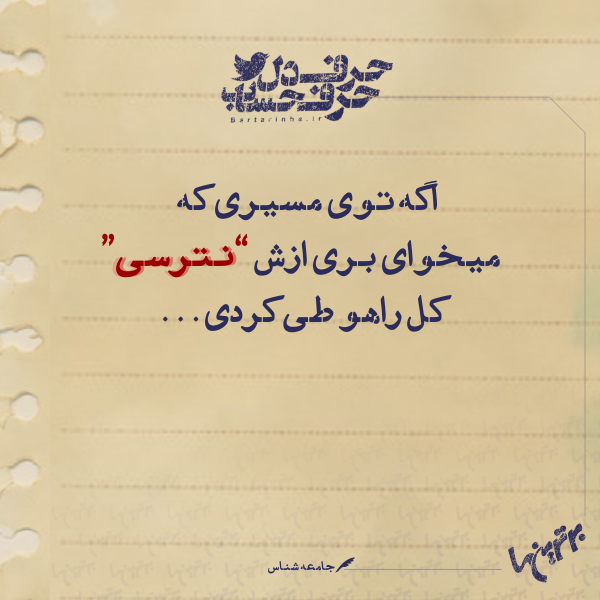 حرف دل
حرف حساب
Bartarinha.ir
اگه توی مسیری که
میخوای بری ازش “نترسی”
کل راهو طی کردی...
جامعه شناس
برترین‌ها